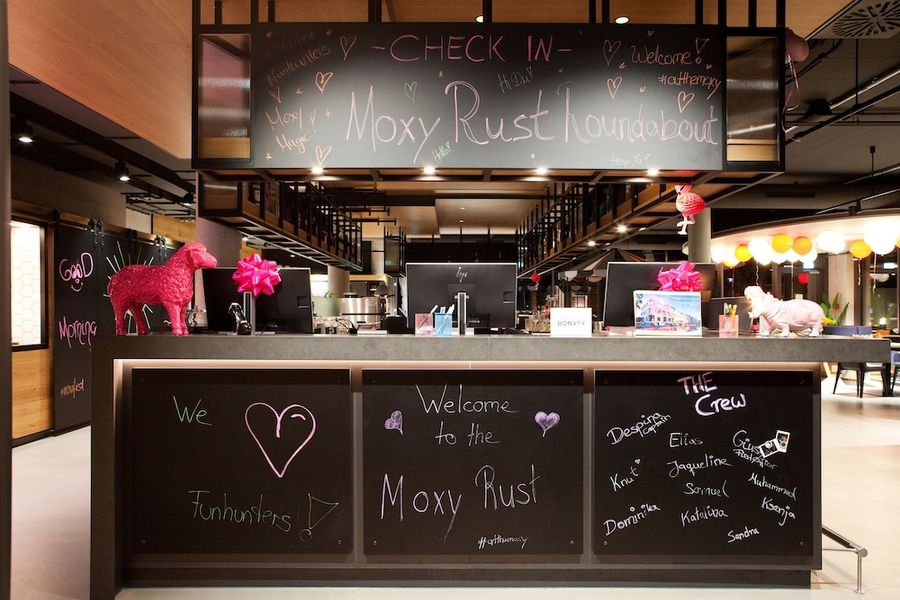 -CHECK IN-
#funhunters
Moxy
Magic!
Hi Du!
Welcome!
#atthemoxy
Moxy Rust houndabout
Hello!
Hey Ya!
GOOD
Morning
BONVOY
We
Funhunters!
Welcome
to the
Moxy Rust
#atthemoxy
THE
Crew
Despina
Captain
Elias
Knut
Jaqueline
Samuel
Muhammad
Ksenja
Dominika
Katalina
Sandra